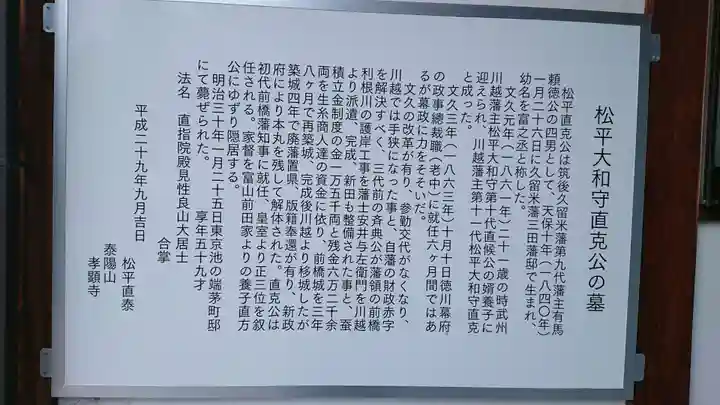 松平大和守直克公の墓
松平直克公は筑後久留米藩第九代藩主有馬
頼徳公の四男として、天保十年(一八四〇年)
一月二十六日に久留米藩三田藩邸で生まれ、
幼名を富之丞と称した。
文久元年(一八六一年)二十一歳の時武州
川越藩主松平大和守第十代直候公の婿養子に
迎えられ、川越藩主第十一代松平大和守直克
と成った。
文久三年(一八六三年)十月十日徳川幕府
の政事總裁職(老中)に就任六ヶ月間ではあ
るが幕政に力をそそいだ。
文久の改革が有り、参勤交代がなくなり、
川越では手狭になった事と、自藩の財政赤字
を解決すべく、三代前の斉典公が藩領の前橋
利根川の護岸工事を藩士安井与左衛門を川越
より派遣、完成、新田も整備された事と、蚕
積立金制度の金一万五千両と残金六万二千余
両を生糸商人達の資金に依り、前橋城を三年
八ヶ月で再築城、完成後川越より移城したが
築城四年で廃藩置県、版籍奉還が有り、新政
府により本丸を残して解体された。直克公は
初代前橋藩知事に就任、皇室より正三位を叙
任される。家督を富山前田家よりの養子直方
公にゆずり隠居する。
明治三十年一月二十五日東京池の端茅町邸
にて薨ぜられた。 享年五十九才
法名 直指院殿見性良山大居士
合掌
平成二十九年九月吉日
松平直泰
泰陽山
孝顕寺